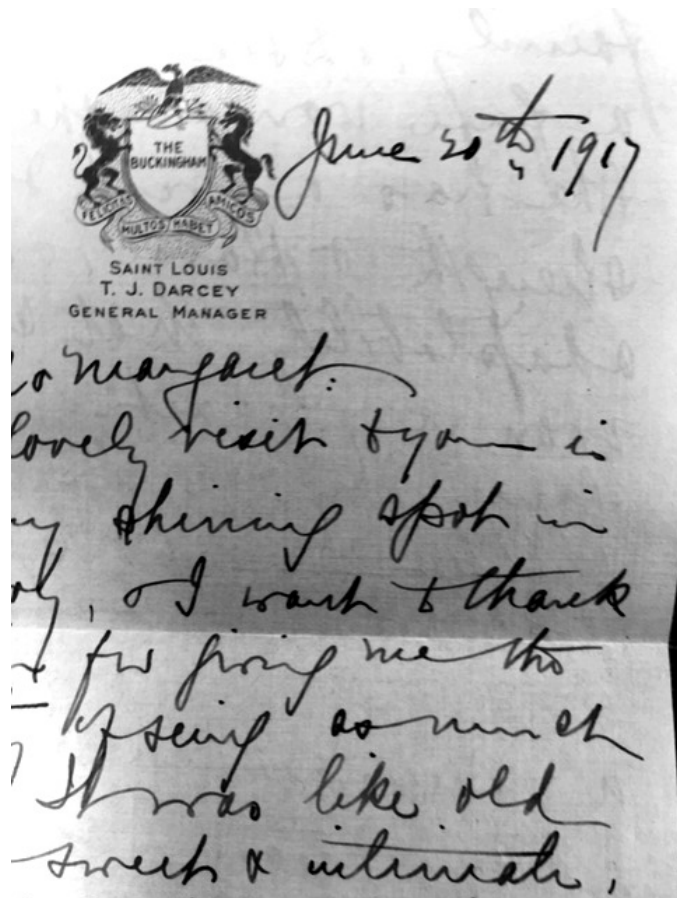 THE
BUCKINGHAM
FELICITAS MULTOS HABET AMICOS
SAINT LOUIS
T. J. DARCEY
GENERAL MANAGER
June 20th, 1917
Margaret:
lovely visit to you is
shining spot in
, & I want to thank
for giving me the
of seeing as much
It was like old
sweet & intimate,